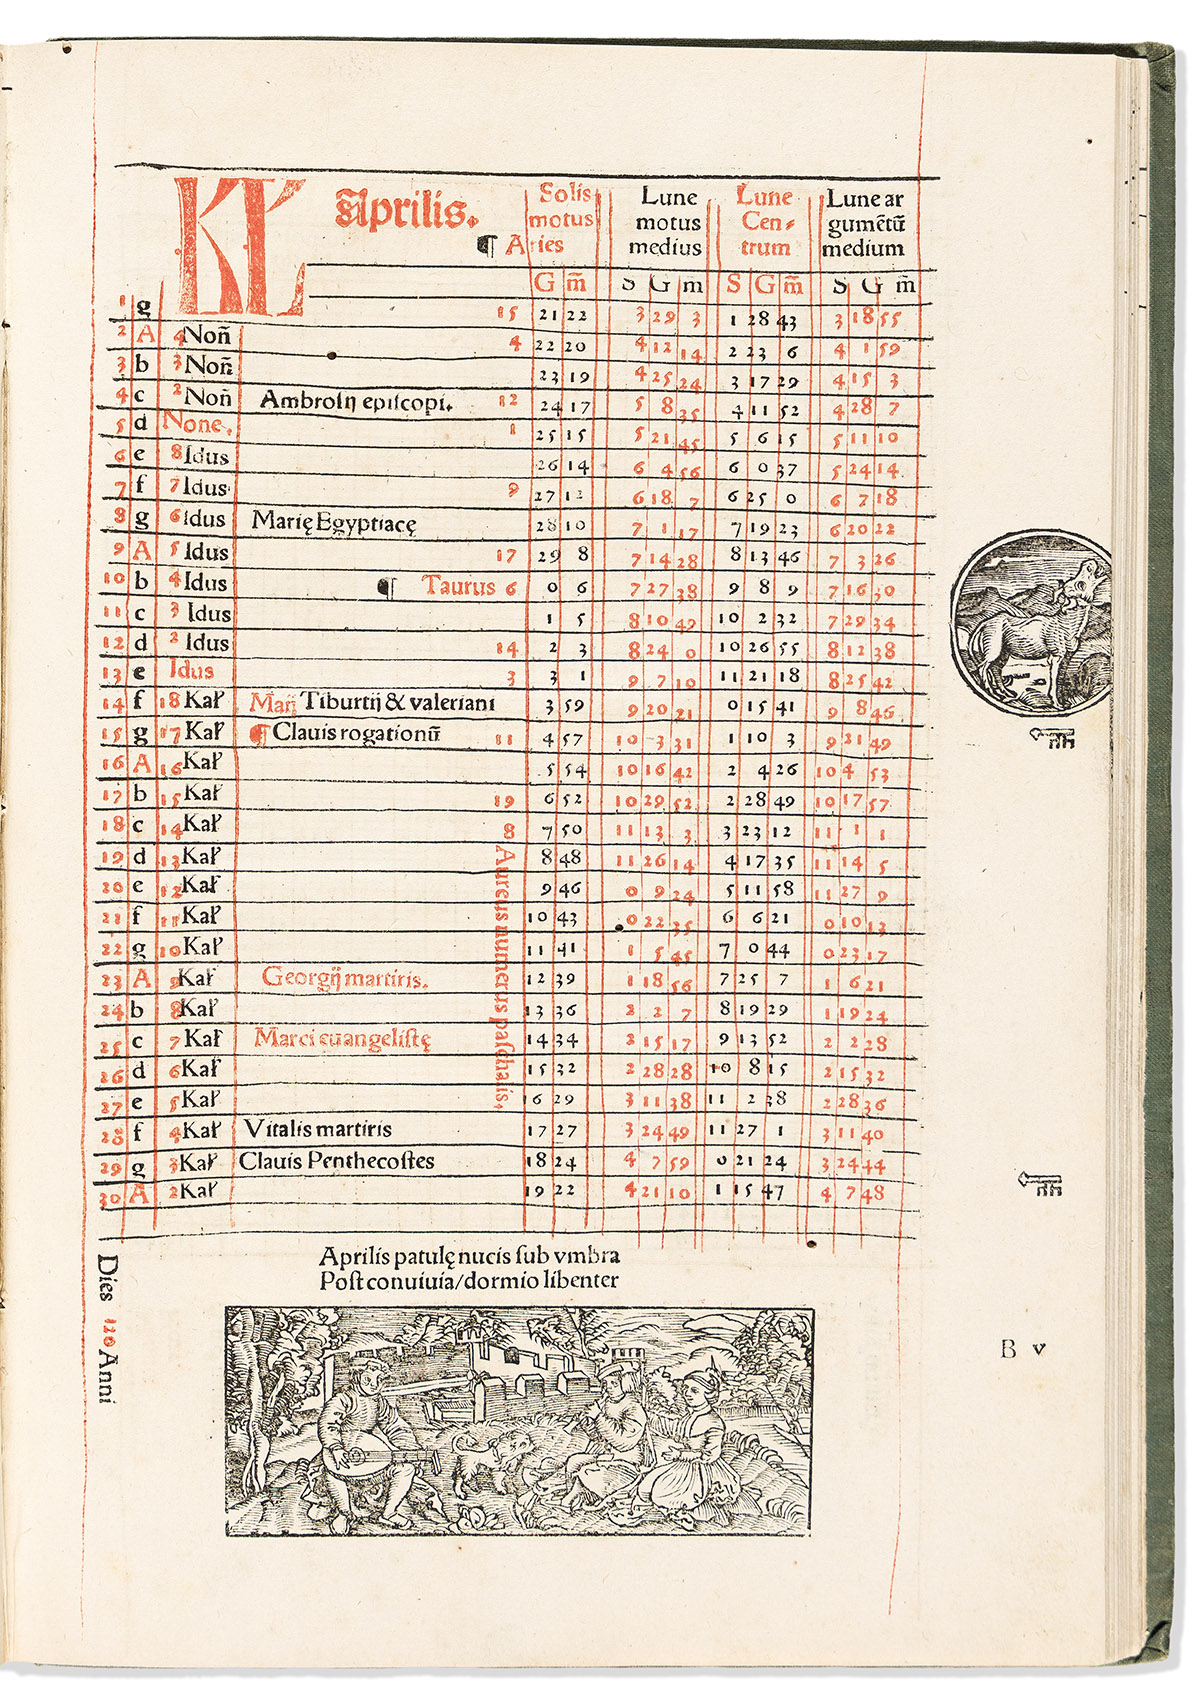 KL Aprilis. Solis motus Lune motus medius Lune Cen⸗ trum Lune ar gumētū medium
¶ Aries
G m̄ S G m S G m̄ S G m̄
1 g 15 21 22 3 29 3 1 28 43 3 18 55
2 A 4 Non̄ 4 22 20 4 12 14 2 23 6 4 1 59
3 b 3 Non̄ 23 19 4 25 24 3 17 29 4 15 3
4 c 2 Non̄ Ambrosij episcopi. 12 24 17 5 8 35 4 11 52 4 28 7
5 d None. 1 25 15 5 21 45 5 6 15 5 11 10
6 e 8 Idus 26 14 6 4 56 6 0 37 5 24 14
7 f 7 Idus 9 27 12 6 18 7 6 25 0 6 7 18
8 g 6 Idus Marię Egyptiacę 28 10 7 1 17 7 19 23 6 20 22
9 A 5 Idus 17 29 8 7 14 28 8 13 46 7 3 26
10 b 4 Idus ¶ Taurus 6 0 6 7 27 38 9 8 9 7 16 30
11 c 3 Idus 1 5 8 10 49 10 2 32 7 29 34
12 d 2 Idus 14 2 3 8 24 0 10 26 55 8 12 38
13 e Idus 3 3 1 9 7 10 11 21 18 8 25 42
14 f 18 Kal Mar̄ Tiburtij & valeriani 3 59 9 20 21 0 15 41 9 8 46
15 g 17 Kal ¶ Clauis rogationū 11 4 57 10 3 31 1 10 3 9 21 49
16 A 16 Kal 5 54 10 16 42 2 4 26 10 4 53
17 b 15 Kal 19 6 52 10 29 52 2 28 49 10 17 57
18 c 14 Kal 8 7 50 11 13 3 3 23 12 11 1 1
19 d 13 Kal 8 48 11 26 14 4 17 35 11 14 5
20 e 12 Kal 9 46 0 9 24 5 11 58 11 27 9
21 f 11 Kal 10 43 0 22 35 6 6 21 0 10 13
22 g 10 Kal 11 41 1 5 45 7 0 44 0 23 17
23 A 9 Kal Georgij martiris. 12 39 1 18 56 7 25 7 1 6 21
24 b 8 Kal 13 36 2 2 7 8 19 29 1 19 24
25 c 7 Kal Marci euangelistę 14 34 2 15 17 9 13 52 2 2 28
26 d 6 Kal 15 32 2 28 28 10 8 15 2 15 32
27 e 5 Kal 16 29 3 11 38 11 2 38 2 28 36
28 f 4 Kal Vitalis martiris 17 27 3 24 49 11 27 1 3 11 40
29 g 3 Kal Clauis Penthecostes 18 24 4 7 59 0 21 24 3 24 44
30 A 2 Kal 19 22 4 21 10 1 15 47 4 7 48
Aureus numerus paschalis.
Aprilis patulę nucis sub vmbra
Post conuiuia/dormio libenter
Dies 120 Anni
B v